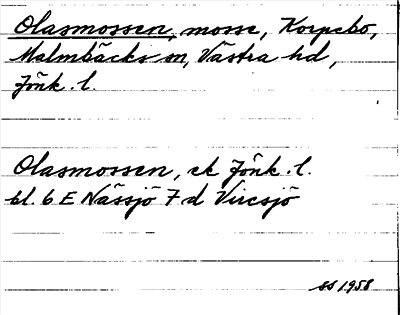 Olasmossen, mosse, Korpebo,
Malmbäcks sn, Västra hd,
Jönk. l.
Olasmossen, ek Jönk. l.
bl. 6 E Nässjö 7 d Vircsjö
SS 1958